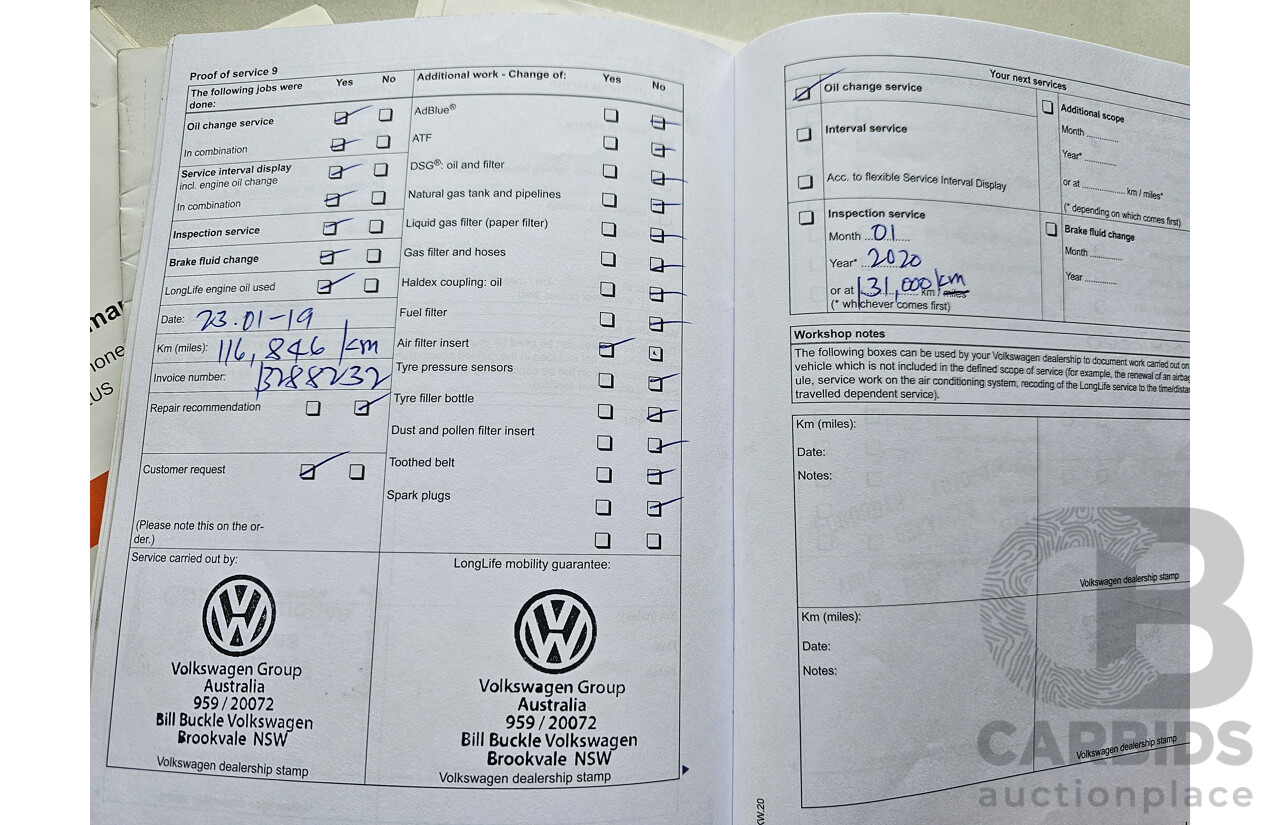 Proof of service 9
The following jobs were
done:
Yes
No
Oil change service
In combination
Service interval display
incl. engine oil change
In combination
Inspection service
Brake fluid change
LongLife engine oil used
Date: 23.01-19
Km (miles): 116,846 km
Invoice number: 13288232
Repair recommendation
Customer request
(Please note this on the or-
der.)
Additional work - Change of:
Yes
No
AdBlue®
ATF
DSG®: oil and filter
Natural gas tank and pipelines
Liquid gas filter (paper filter)
Gas filter and hoses
Haldex coupling: oil
Fuel filter
Air filter insert
Tyre pressure sensors
Tyre filler bottle
Dust and pollen filter insert
Toothed belt
Spark plugs
Service carried out by:
Volkswagen Group
Australia
959 / 20072
Bill Buckle Volkswagen
Brookvale NSW
Volkswagen dealership stamp
LongLife mobility guarantee:
Volkswagen Group
Australia
959 / 20072
Bill Buckle Volkswagen
Brookvale NSW
Volkswagen dealership stamp
Your next services
Oil change service
Interval service
Acc. to flexible Service Interval Display
Inspection service
Month 01
Year* 2020
or at 131,000 km km / miles
(* whichever comes first)
Additional scope
Month
Year*
or at km / miles*
(* depending on which comes first)
Brake fluid change
Month
Year
Workshop notes
The following boxes can be used by your Volkswagen dealership to document work carried out on
vehicle which is not included in the defined scope of service (for example, the renewal of an airbag
ule, service work on the air conditioning system, recoding of the LongLife service to the time/distan
travelled dependent service).
Km (miles):
Date:
Notes:
Volkswagen dealership stamp
Km (miles):
Date:
Notes:
Volkswagen dealership stamp
CARBIDS
auctionplace